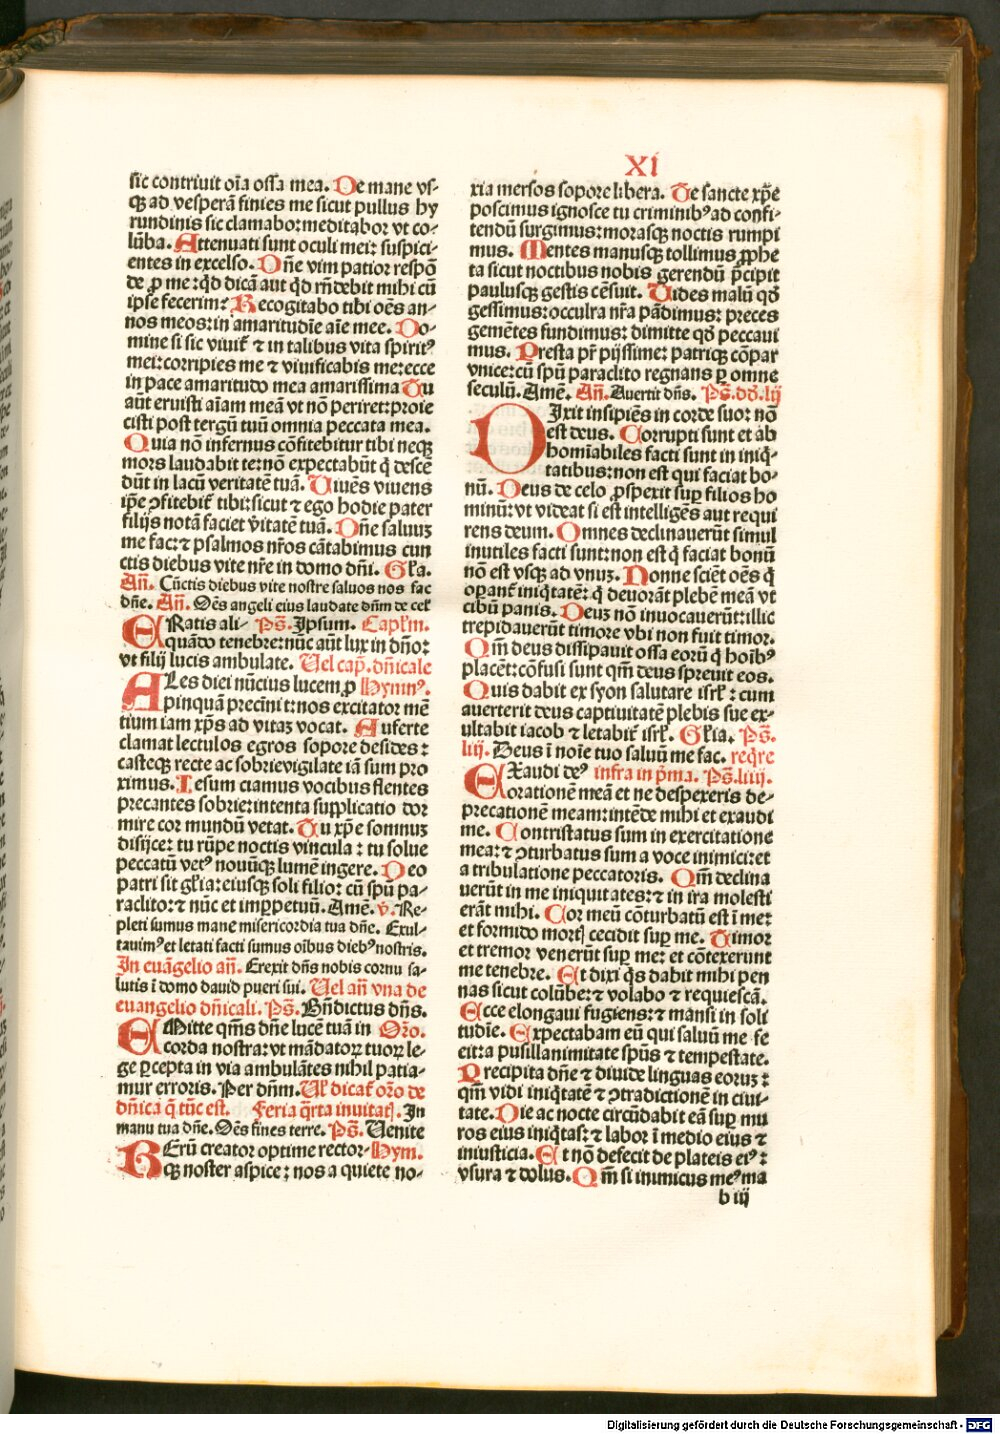 XI
sic contriuit oīa ossa mea. De mane vs-
qꝫ ad vesperā finies me sicut pullus hy
rundinis sic clamabo: meditabor vt co-
lūba. Attenuati sunt oculi mei: suspici-
entes in excelso. Dn̄e vim patior respō
de ꝓ me: qd̄ dicā aut qd̄ rn̄debit mihi cū
ipse fecerim: Recogitabo tibi oēs an-
nos meos: in amaritudīe aīe mee. Do-
mine si sic viuiť ⁊ in talibus vita spiritꝰ
mei: corripies me ⁊ viuificabis me: ecce
in pace amaritudo mea amarissima Tu
aūt eruisti aīam meā vt nō periret: proie
cisti post tergū tuū omnia peccata mea.
Quia nō infernus cōfitebitur tibi neqꝫ
mors laudabit te: nō expectabūt q̄ descē
dūt in lacū veritatē tuā. Viuēs viuens
ip̄e ꝯfitebiť tibi: sicut ⁊ ego hodie pater
filijs notā faciet v̄itatē tuā. Dn̄e saluuꝫ
me fac: ⁊ psalmos nr̄os cātabimus cun
ctis diebus vite nr̄e in domo dn̄i. Gľa.
Añ. Cūctis diebus vite nostre saluos nos fac
dn̄e. Añ. Oēs angeli eius laudate dn̄m de cel̓
ERatis ali- Ps̄. Ipsum. Capľm.
quādo tenebre: nūc aūt lux in dn̄o:
vt filij lucis ambulate. Vel cap̄. dn̄icale
ALes diei nūcius lucem ꝓ Hymnꝰ.
pinquā precīnit: nos excitator mē
tium iam xp̄s ad vitaꝫ vocat. Auferte
clamat lectulos egros sopore desides:
casteqꝫ recte ac sobrie vigilate iā sum pro
ximus. Iesum ciamus vocibus flentes
precantes sobrie: intenta supplicatio dor
mire cor mundū vetat. Tu xp̄e somnuꝫ
disijce: tu rūpe noctis vincula: tu solue
peccatū vetꝰ nouūqꝫ lumē ingere. Deo
patri sit gľia: eiusqꝫ soli filio: cū spū pa-
raclito: ⁊ nūc et imꝑpetuū. Amē. v̄. Re-
pleti sumus mane misericordia tua dn̄e. Exul-
tauimꝰ et letati facti sumus oībus diebꝰ nostris.
In euāgelio añ. Erexit dn̄s nobis cornu sa-
lutis ī domo dauid pueri sui. Vel añ vna de
euangelio dn̄icali. Ps̄. Bn̄dictus dn̄s.
EMitte qm̄s dn̄e lucē tuā in Oro.
corda nostra: vt mādatoꝝ tuoꝝ le-
ge ꝑcepta in via ambulātes nihil patia-
mur erroris. Per dn̄m. Vľ dicať oro de
dn̄ica q̄ tūc est. Feria q̄rta inuitať. In
manu tua dn̄e. Oēs fines terre. Ps̄. Uenite
RErū creator optime rector- Hym.
qꝫ noster aspice: nos a quiete no-
xia mersos sopore libera. Te sancte xp̄e
poscimus ignosce tu criminibꝰ ad confi-
tendū surgimus: morasqꝫ noctis rumpi
mus. Mentes manusqꝫ tollimus ꝓphe
ta sicut noctibus nobis gerendū p̄cipit
paulusqꝫ gestis cēsuit. Vides malū qd̄
gessimus: occulta nr̄a pādimus: preces
gemētes fundimus: dimitte qd̄ peccaui
mus. Presta pr̄ pijssime: patriqꝫ cōpar
vnice: cū spū paraclito regnans ꝑ omne
seculū. Amē. Añ. Auertit dn̄s. Ps̄. dd̄. lij
DIxit insipiēs in corde suo: nō
est deus. Corrupti sunt et ab
homīabiles facti sunt in iniq̄-
tatibus: non est qui faciat bo-
nū. Deus de celo ꝓspexit suꝑ filios ho
minū: vt videat si est intelligēs aut requi
rens deum. Omnes declinauerūt simul
inutiles facti sunt: non est q̄ faciat bonū
nō est vsqꝫ ad vnuꝫ. Nonne sciēt oēs q̄
oꝑanť iniq̄tatē: q̄ deuorāt plebē meā vt
cibū panis. Deuꝫ nō inuocauerūt: illic
trepidauerūt timore vbi non fuit timor.
Qm̄ deus dissipauit ossa eorū q̄ hoībꝰ
placēt: cōfusi sunt qm̄ deus spreuit eos.
Quis dabit ex syon salutare isrľ: cum
auerterit deus captiuitatē plebis sue ex-
ultabit iacob ⁊ letabiť isrľ. Gľia. Ps̄.
liij. Deus ī noīe tuo saluū me fac. reqre
EXaudi deꝰ infra in p̄ma. Ps̄. liiij.
orationē meā et ne despexeris de-
precationē meam: intēde mihi et exaudi
me. Contristatus sum in exercitatione
mea: ⁊ ꝯturbatus sum a voce inimici: et
a tribulatione peccatoris. Qm̄ declina
uerūt in me iniquitates: ⁊ in ira molesti
erāt mihi. Cor meū cōturbatū est ī me:
et formido mortꝭ cecidit suꝑ me. Timor
et tremor venerūt suꝑ me: et cōtexerunt
me tenebre. Et dixi q̄s dabit mihi pen
nas sicut colūbe: ⁊ volabo ⁊ requiescā.
Ecce elongaui fugiens: ⁊ mansi in soli
tudīe. Expectabam eū qui saluū me fe
cit: a pusillanimitate spūs ⁊ tempestate.
Precipita dn̄e ⁊ diuide linguas eoruꝫ:
qm̄ vidi iniq̄tatē ⁊ ꝯtradictionē in ciui-
tate. Die ac nocte circūdabit eā suꝑ mu
ros eius iniq̄tas: ⁊ labor ī medio eius ⁊
iniusticia. Et nō defecit de plateis eiꝰ:
vsura ⁊ dolus. Qm̄ si inimicus meꝰ ma
b iij
Digitalisierung gefördert durch die Deutsche Forschungsgemeinschaft - DFG